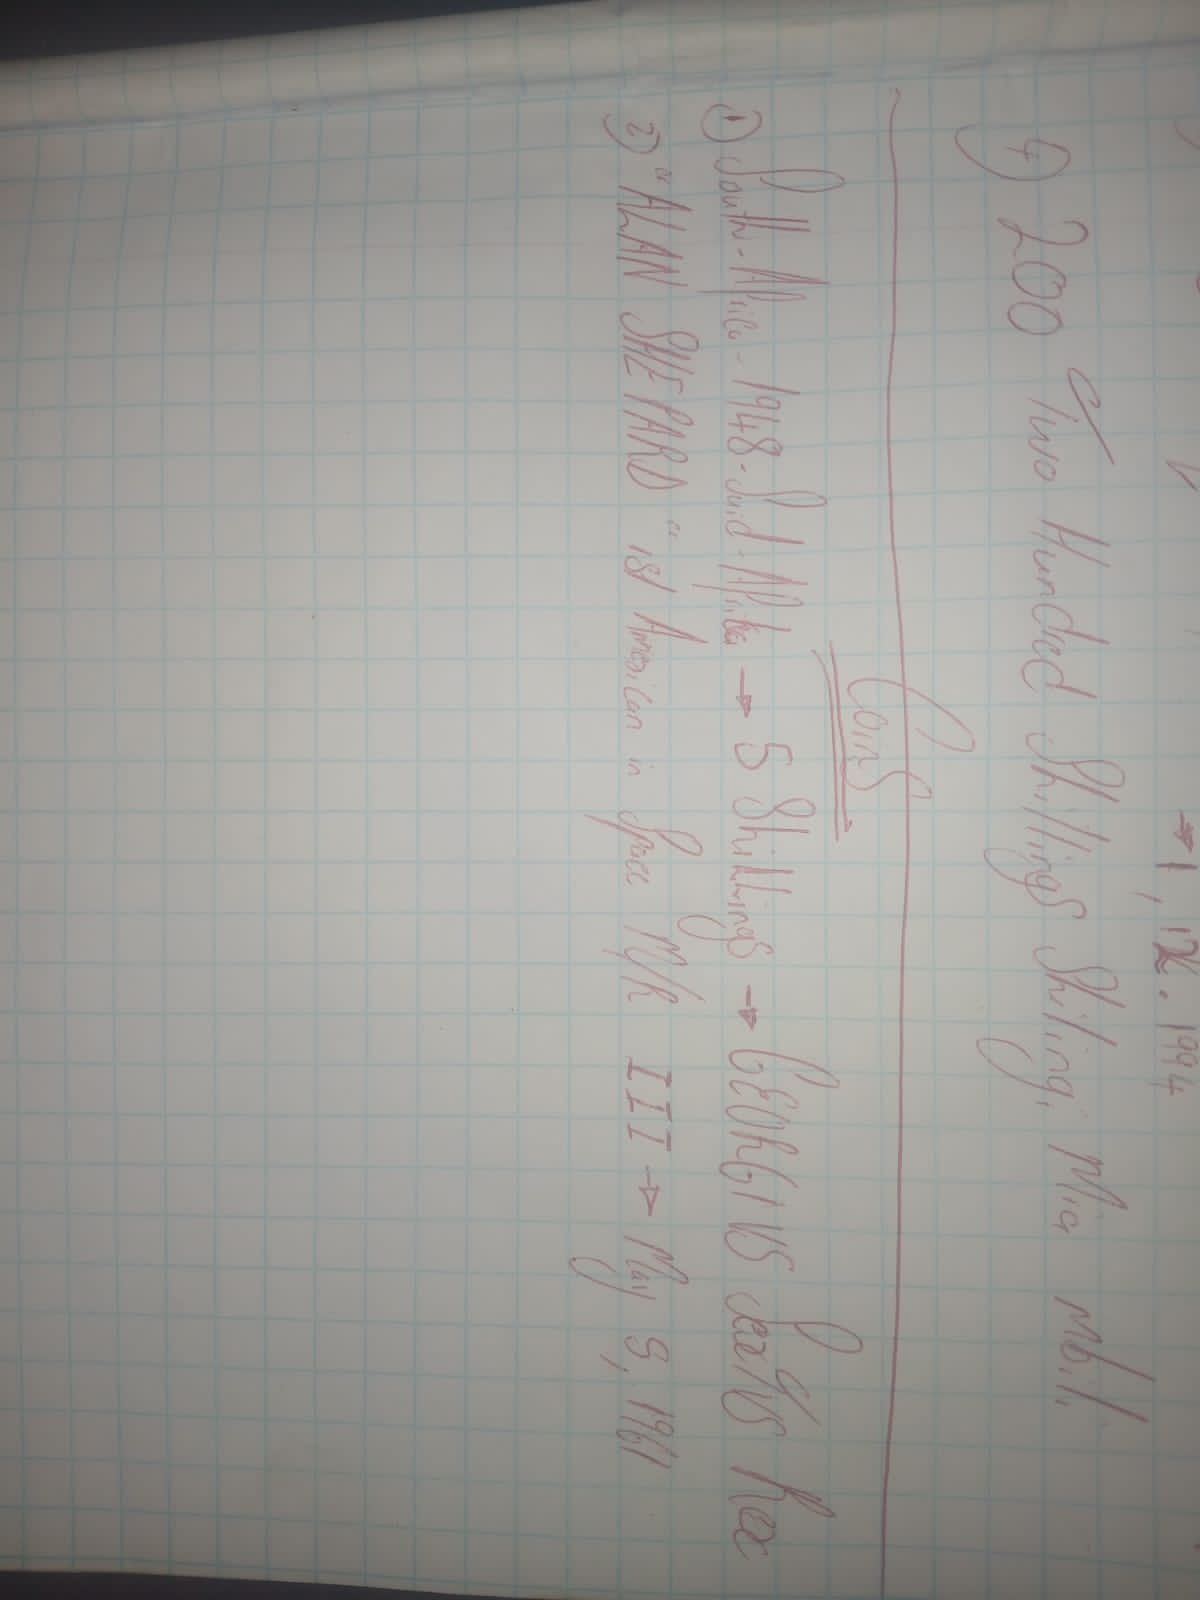 → 1, 12. 1994
4) 200 Two Hundred Shillings Shilingi Mia mbili
Coins
1) South-Africa-1948-Suid-Afrika → 5 Shillings → GEORGIVS SextVS Rex
2) "ALAN SHEPARD" 1st American in Space M/R III → May 5, 1961